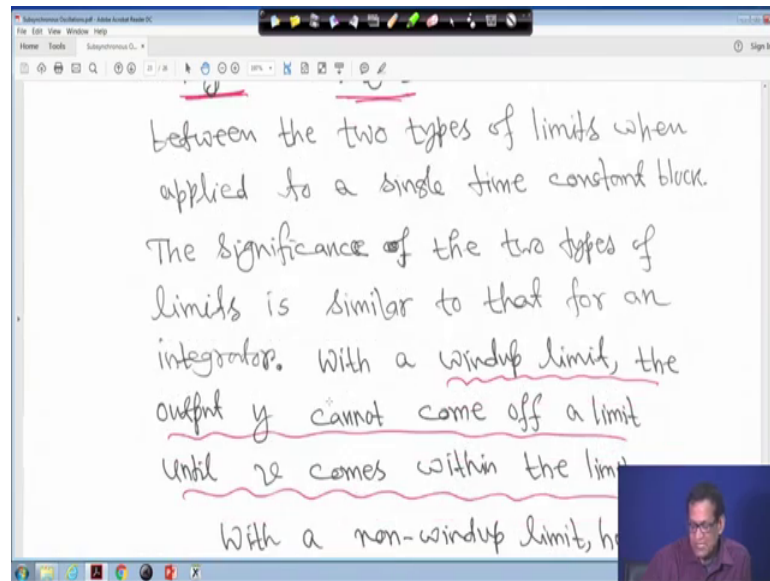 Subsynchronous Oscillations.pdf - Adobe Acrobat Reader DC
File Edit View Window Help
Home Tools Subsynchronous O... × Sign In
between the two types of limits when
applied to a single time constant block.
The significance of the two types of
limits is similar to that for an
integrator. With a windup limit, the
output y cannot come off a limit
until v comes within the
With a non-windup limit,